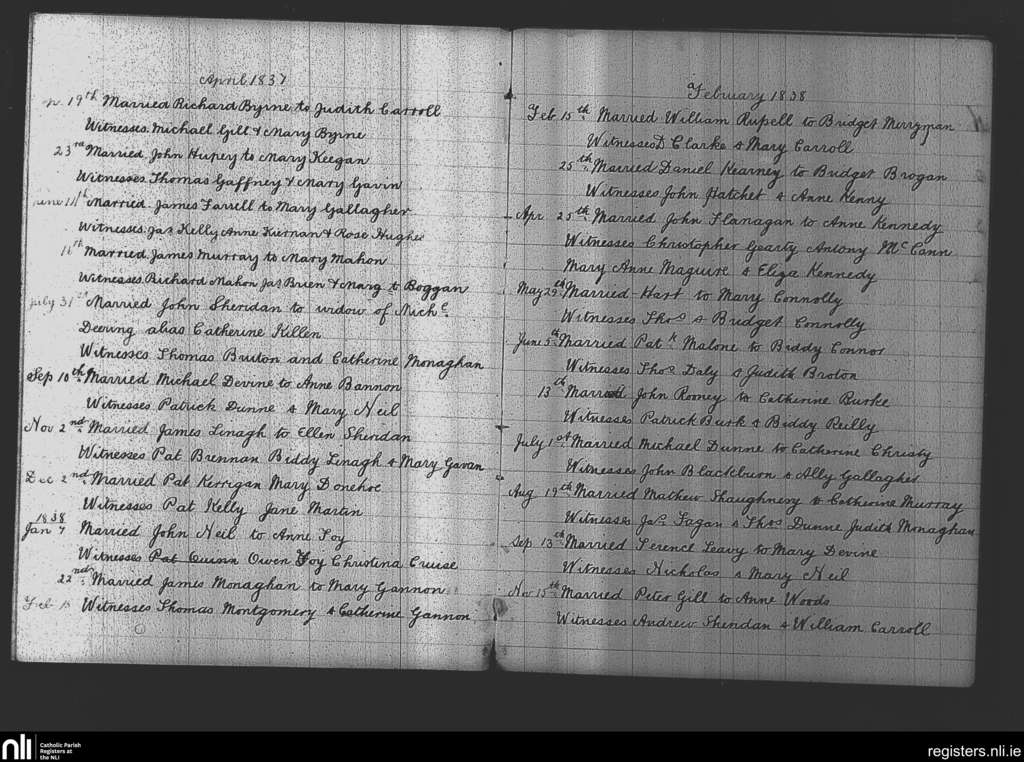 April 1837
Ap. 19th Married Richard Byrne to Judith Carroll
Witnesses. Michael Gill & Mary Byrne
23rd Married John Hupey to Mary Keegan
Witnesses. Thomas Gaffney & Mary Gavin
June 11th Married James Farrell to Mary Gallagher
Witnesses. Jas Kelly Anne Kiernan & Rose Hughes
16th Married James Murray to Mary Mahon
Witnesses Richard Mahon Jas Brien & Marg t Boggan
July 31st Married John Sheridan to widow of Michl
Deering alias Catherine Killen
Witnesses Thomas Bruton and Catherine Monaghan
Sep 10th Married Michael Devine to Anne Bannon
Witnesses Patrick Dunne & Mary Neil
Nov 2nd Married James Linagh to Ellen Sheridan
Witnesses Pat Brennan Biddy Linagh & Mary Gavan
Dec 2nd Married Pat Kerrigan Mary Donehoe
Witnesses Pat Kelly Jane Martin
1838
Jan 7 Married John Neil to Anne Foy
Witnesses Pat Quinn Owen Foy Christina Cruise
22nd Married James Monaghan to Mary Gannon
Feb 15 Witnesses Thomas Montgomery & Catherine Gannon
February 1838
Feb 15th Married William Rupell to Bridget Merryman
Witnesses D Clarke & Mary Carroll
25th Married Daniel Kearney to Bridget Brogan
Witnesses John Hatchet & Anne Kenny
Apr 25th Married John Flanagan to Anne Kennedy
Witnesses Christopher Gearty Antony McCann
Mary Anne Maguire & Eliza Kennedy
May 29th Married Hart to Mary Connolly
Witnesses Thos & Bridget Connolly
June 5th Married Patk Malone to Biddy Connor
Witnesses Thos Daly & Judith Broton
13th Married John Rooney to Catherine Burke
Witnesses Patrick Burk & Biddy Reilly
July 1st Married Michael Dunne to Catherine Christy
Witnesses John Blackburn & Ally Gallagher
Aug 19th Married Mathew Shaughnesy to Catherine Murray
Witnesses Jas Fagan & Thos Dunne Judith Monaghan
Sep 13th Married Terence Leavy to Mary Devine
Witnesses Nicholas & Mary Neil
Nov 15th Married Peter Gill to Anne Woods
Witnesses Andrew Sheridan & William Carroll
nli
Catholic Parish
Registers at
the NLI
registers.nli.ie